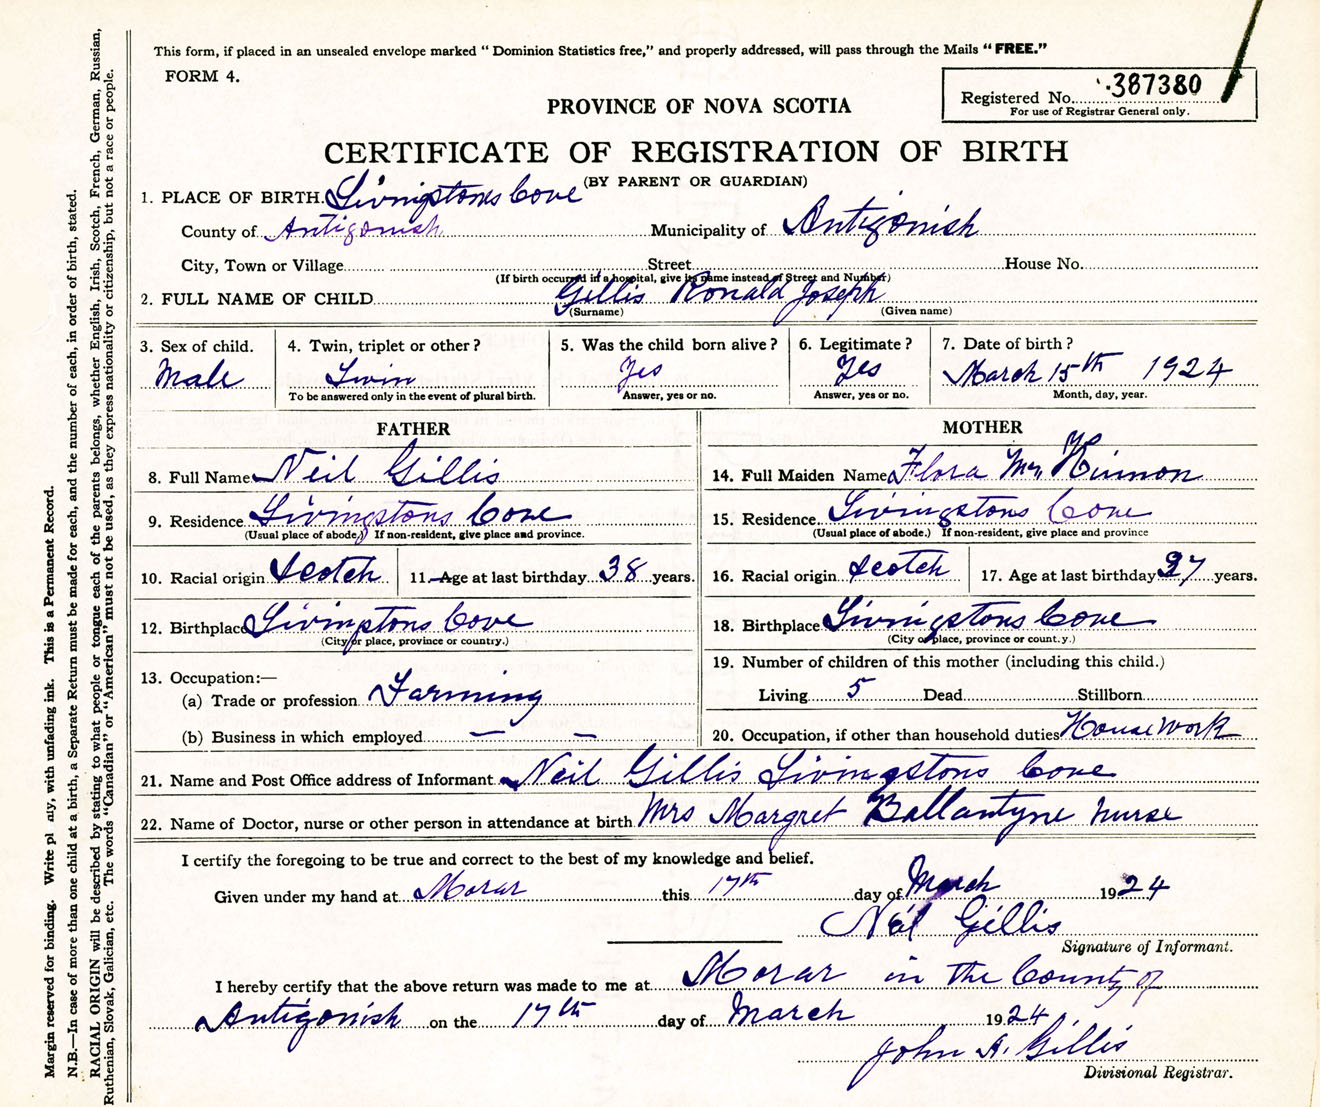 This form, if placed in an unsealed envelope marked "Dominion Statistics free," and properly addressed, will pass through the Mails "FREE."
FORM 4.
Registered No. 387380
For use of Registrar General only.
PROVINCE OF NOVA SCOTIA
CERTIFICATE OF REGISTRATION OF BIRTH
(BY PARENT OR GUARDIAN)
1. PLACE OF BIRTH. Livingstones Cove
County of Antigonish Municipality of Antigonish
City, Town or Village Street House No.
(If birth occurred in a hospital, give its name instead of Street and Number)
2. FULL NAME OF CHILD Gillis Ronald Joseph
(Surname) (Given name)
3. Sex of child. 4. Twin, triplet or other? 5. Was the child born alive? 6. Legitimate? 7. Date of birth?
Male Twin Yes Yes March 15th 1924
To be answered only in the event of plural birth. Answer, yes or no. Answer, yes or no. Month, day, year.
FATHER MOTHER
8. Full Name Neil Gillis 14. Full Maiden Name Flora Mc Kinnon
9. Residence Livingstons Cove 15. Residence Livingstons Cove
(Usual place of abode.) If non-resident, give place and province. (Usual place of abode.) If non-resident, give place and province
10. Racial origin Scotch 11. Age at last birthday 38 years. 16. Racial origin Scotch 17. Age at last birthday 37 years.
12. Birthplace Livingstons Cove 18. Birthplace Livingstons Cove
(City or place, province or country.) (City or place, province or count.y.)
13. Occupation:— 19. Number of children of this mother (including this child.)
(a) Trade or profession Farming Living 5 Dead Stillborn
(b) Business in which employed — — 20. Occupation, if other than household duties House Work
21. Name and Post Office address of Informant Neil Gillis Livingstons Cove
22. Name of Doctor, nurse or other person in attendance at birth Mrs Margret Ballantyne Nurse
I certify the foregoing to be true and correct to the best of my knowledge and belief.
Given under my hand at Morar this 17th day of March 1924
Neil Gillis
Signature of Informant.
I hereby certify that the above return was made to me at Morar in the County of
Antigonish on the 17th day of March 1924
John A. Gillis
Divisional Registrar.
Margin reserved for binding. Write plainly, with unfading ink. This is a Permanent Record.
N.B.—In case of more than one child at a birth, a Separate Return must be made for each, and the number of each, in order of birth, stated.
RACIAL ORIGIN will be described by stating to what people or tongue each of the parents belongs, whether English, Irish, Scotch, French, German, Russian,
Ruthenian, Slovak, Galician, etc. The words "Canadian" or "American" must not be used, as they express nationality or citizenship, but not a race or people.